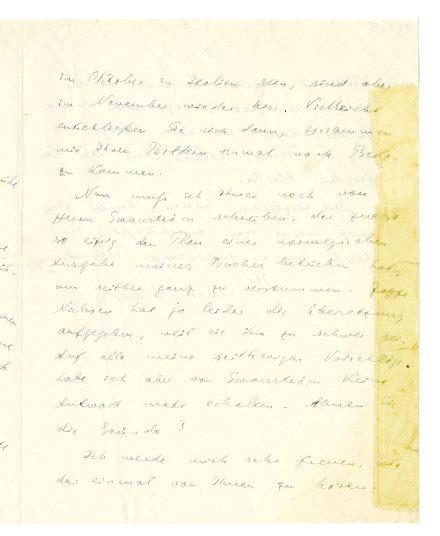 im Oktober in Italien sein, sind aber
im November wieder hier. Vielleicht
entschließen Sie sich dann, zusammen
mit Ihren Bildern einmal nach Berlin
zu kommen.
Nun muß ich Ihnen noch von
Herrn Swanström schreiben, der zuerst
so eifrig den Plan einer norwegischen
Ausgabe meines Buches betrieben hat,
um seither ganz zu verstummen.
Nielsen hat ja leider die Übersetzung
aufgegeben, weil sie ihm zu schwer
Auf alle meine seitherigen Vorschläge
habe ich aber von Swanström keine
Antwort mehr erhalten. Ahnen Sie
die Gründe?
Ich werde mich sehr freuen,
einmal von Ihnen zu hören.